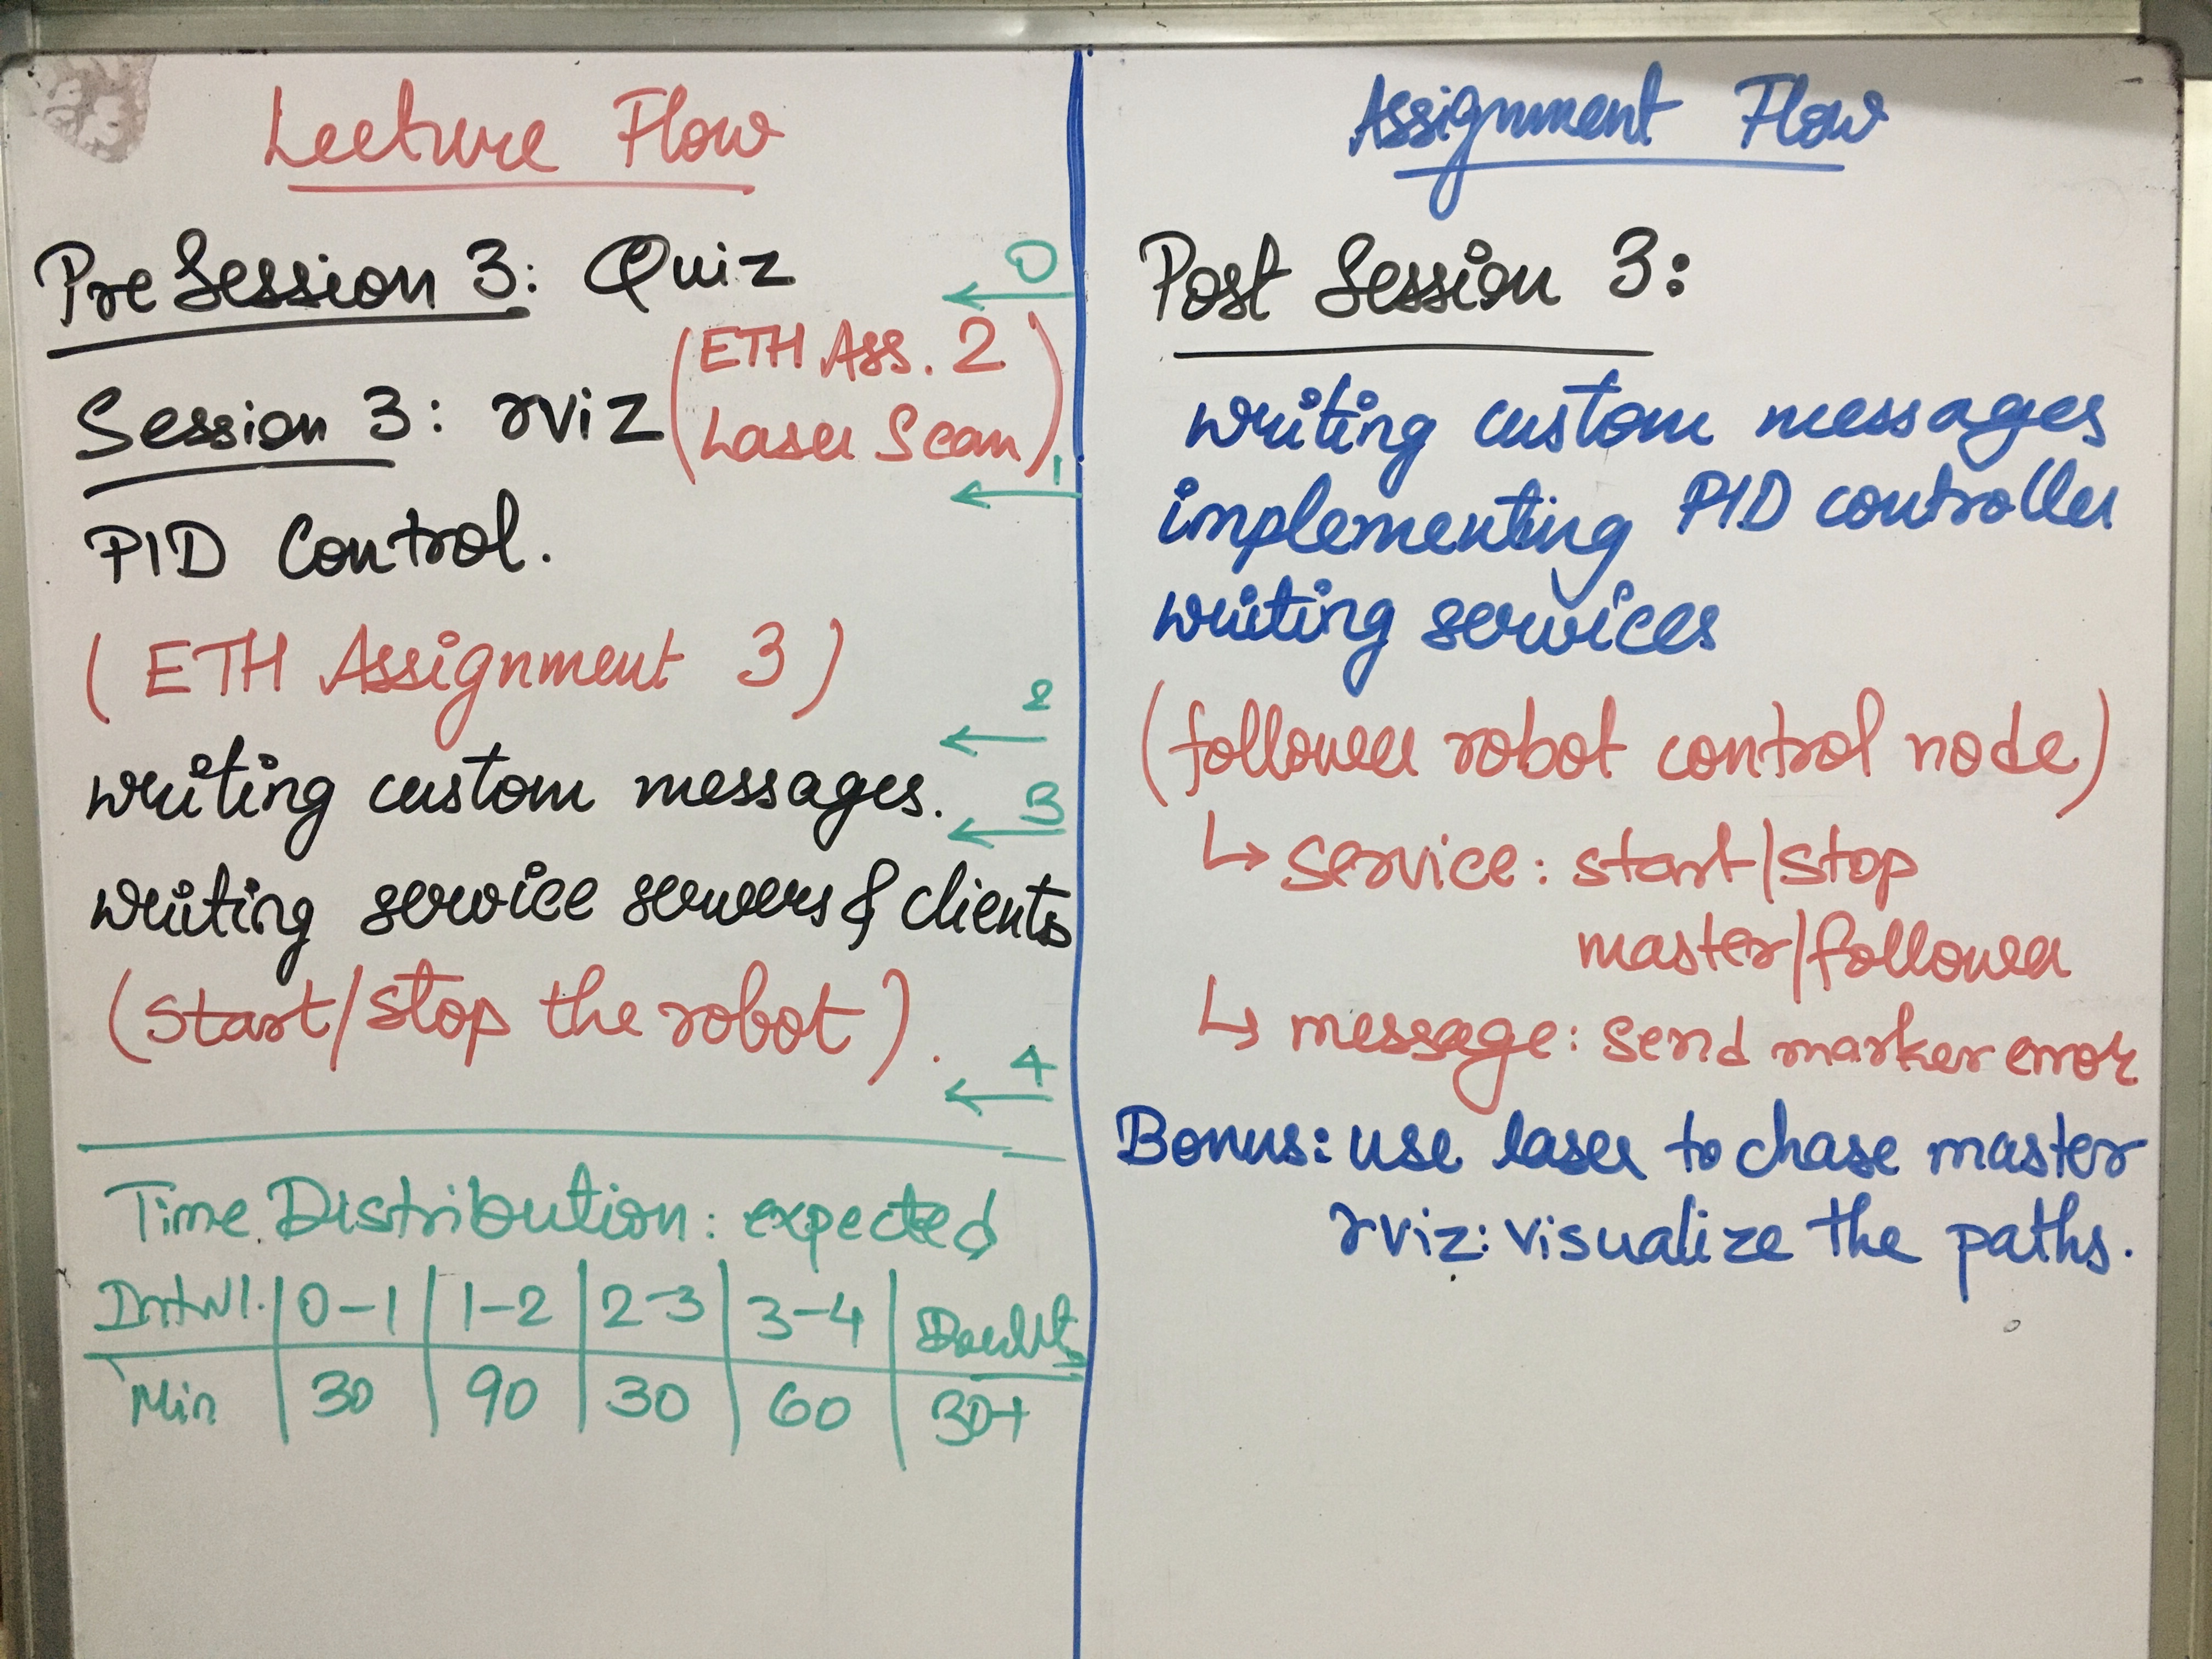 Lecture Flow
Pre Session 3: Quiz
0
Session 3: rviz (ETH Ass. 2
Laser Scan)
1
PID Control.
(ETH Assignment 3)
2
writing custom messages.
3
writing service servers & clients
(start/stop the robot).
4
Time Distribution: expected
Intvl. 0-1 1-2 2-3 3-4 Doubts
Min 30 90 30 60 30+
Assignment Flow
Post Session 3:
writing custom messages
implementing PID controller
writing services
(follower robot control node)
↳ service: start/stop
master/follower
↳ message: send marker error
Bonus: use laser to chase master
rviz: visualize the paths.